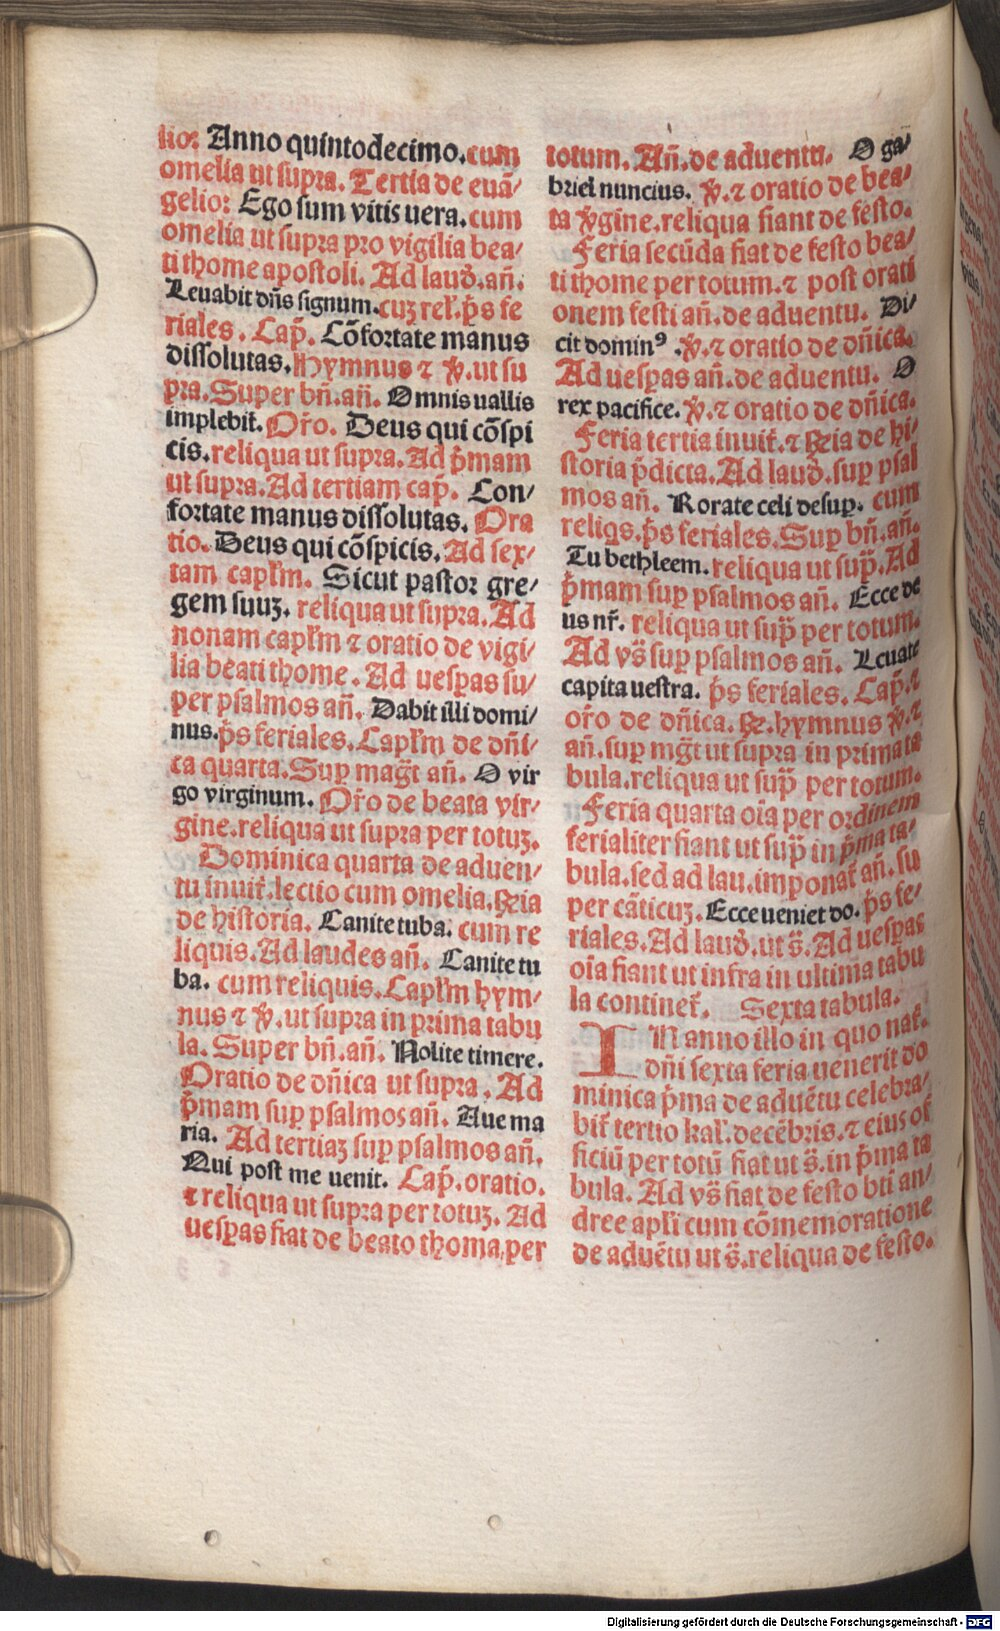 lio: Anno quintodecimo. cum
omelia ut supra. Tertia de euã/
gelio: Ego sum vitis uera. cum
omelia ut supra pro vigilia bea/
ti thome apostoli. Ad laud. añ.
Leuabit dñs signum. cuꝫ rel. p̃s fe
riales. Cap̃. Cõfortate manus
dissolutas. Hymnus ⁊ ꝟ. ut su
pra. Super bñ. añ. Omnis uallis
implebit̃. Or̃o. Deus qui cõspi
cis. reliqua ut supra. Ad p̃mam
ut supra. Ad tertiam cap̃. Con/
fortate manus dissolutas. Ora
tio. Deus qui cõspicis. Ad sex/
tam capl̃m. Sicut pastor gre/
gem suuꝫ. reliqua ut supra. Ad
nonam capl̃m ⁊ oratio de vigi/
lia beati thome. Ad uesꝑas su/
per psalmos añ. Dabit illi domi/
nus. p̃s feriales. Capl̃m de dñi/
ca quarta. Suꝑ mag̃t añ. O vir
go virginum. Or̃o de beata vir/
gine. reliqua ut supra per totuꝫ.
Dominica quarta de aduen/
tu inuit̃. lectio cum omelia. ꝶia
de historia. Canite tuba. cum re
liquis. Ad laudes añ. Canite tu
ba. cum reliquis. Capl̃m hym/
nus ⁊ ꝟ. ut supra in prima tabu
la. Super bñ. añ. Nolite timere.
Oratio de dñica ut supra. Ad
p̃mam suꝑ psalmos añ. Aue ma
ria. Ad tertiaꝫ suꝑ psalmos añ.
Qui post me uenit. Cap̃. oratio.
⁊ reliqua ut supra per totuꝫ. Ad
uesꝑas fiat de beato thoma, per
totum. Añ. de aduentu. O ga/
briel nuncius. ꝟ. ⁊ oratio de bea/
ta ꝟgine. reliqua fiant de festo.
Feria secũda fiat de festo bea/
ti thome per totum. ⁊ post orati
onem festi añ. de aduentu. Di/
cit dominꝰ. ꝟ. ⁊ oratio de dñica.
Ad uesꝑas añ. de aduentu. O
rex pacifice. ꝟ. ⁊ oratio de dñica.
Feria tertia inuit̃. ⁊ ꝶia de hi/
storia p̃dicta. Ad laud. suꝑ psal
mos añ. Rorate celi desuꝑ. cum
reliqs. p̃s feriales. Suꝑ bñ. añ.
Tu bethleem. reliqua ut sup̃. Ad
p̃mam suꝑ psalmos añ. Ecce de
us nr̃. reliqua ut sup̃ per totum.
Ad vs̃ suꝑ psalmos añ. Leuate
capita uestra. p̃s feriales. Cap̃. ⁊
or̃o de dñica. ꝶ. hymnus ꝟ. ⁊
añ. suꝑ mg̃t ut supra in prima ta
bula. reliqua ut sup̃ per totum.
Feria quarta oĩa per ordinem
ferialiter fiant ut sup̃ in p̃ma ta/
bula. sed ad lau. imponat̃ añ. su
per cãticuꝫ. Ecce ueniet do. p̃s fe/
riales. Ad laud. ut s̃. Ad uesꝑas
oĩa fiant ut infra in ultima tabu
la continet̃. Sexta tabula.
IN anno illo in quo nat̃.
dñi sexta feria uenerit do
minica p̃ma de aduẽtu celebra/
bit̃ tertio kal̃. decẽbris. ⁊ eius of
ficiũ per totũ fiat ut s̃. in p̃ma ta
bula. Ad vs̃ fiat de festo bti an/
dree apl̃i cum cõmemoratione
de aduẽtu ut s̃. reliqua de festo.
Digitalisierung gefördert durch die Deutsche Forschungsgemeinschaft - DFG